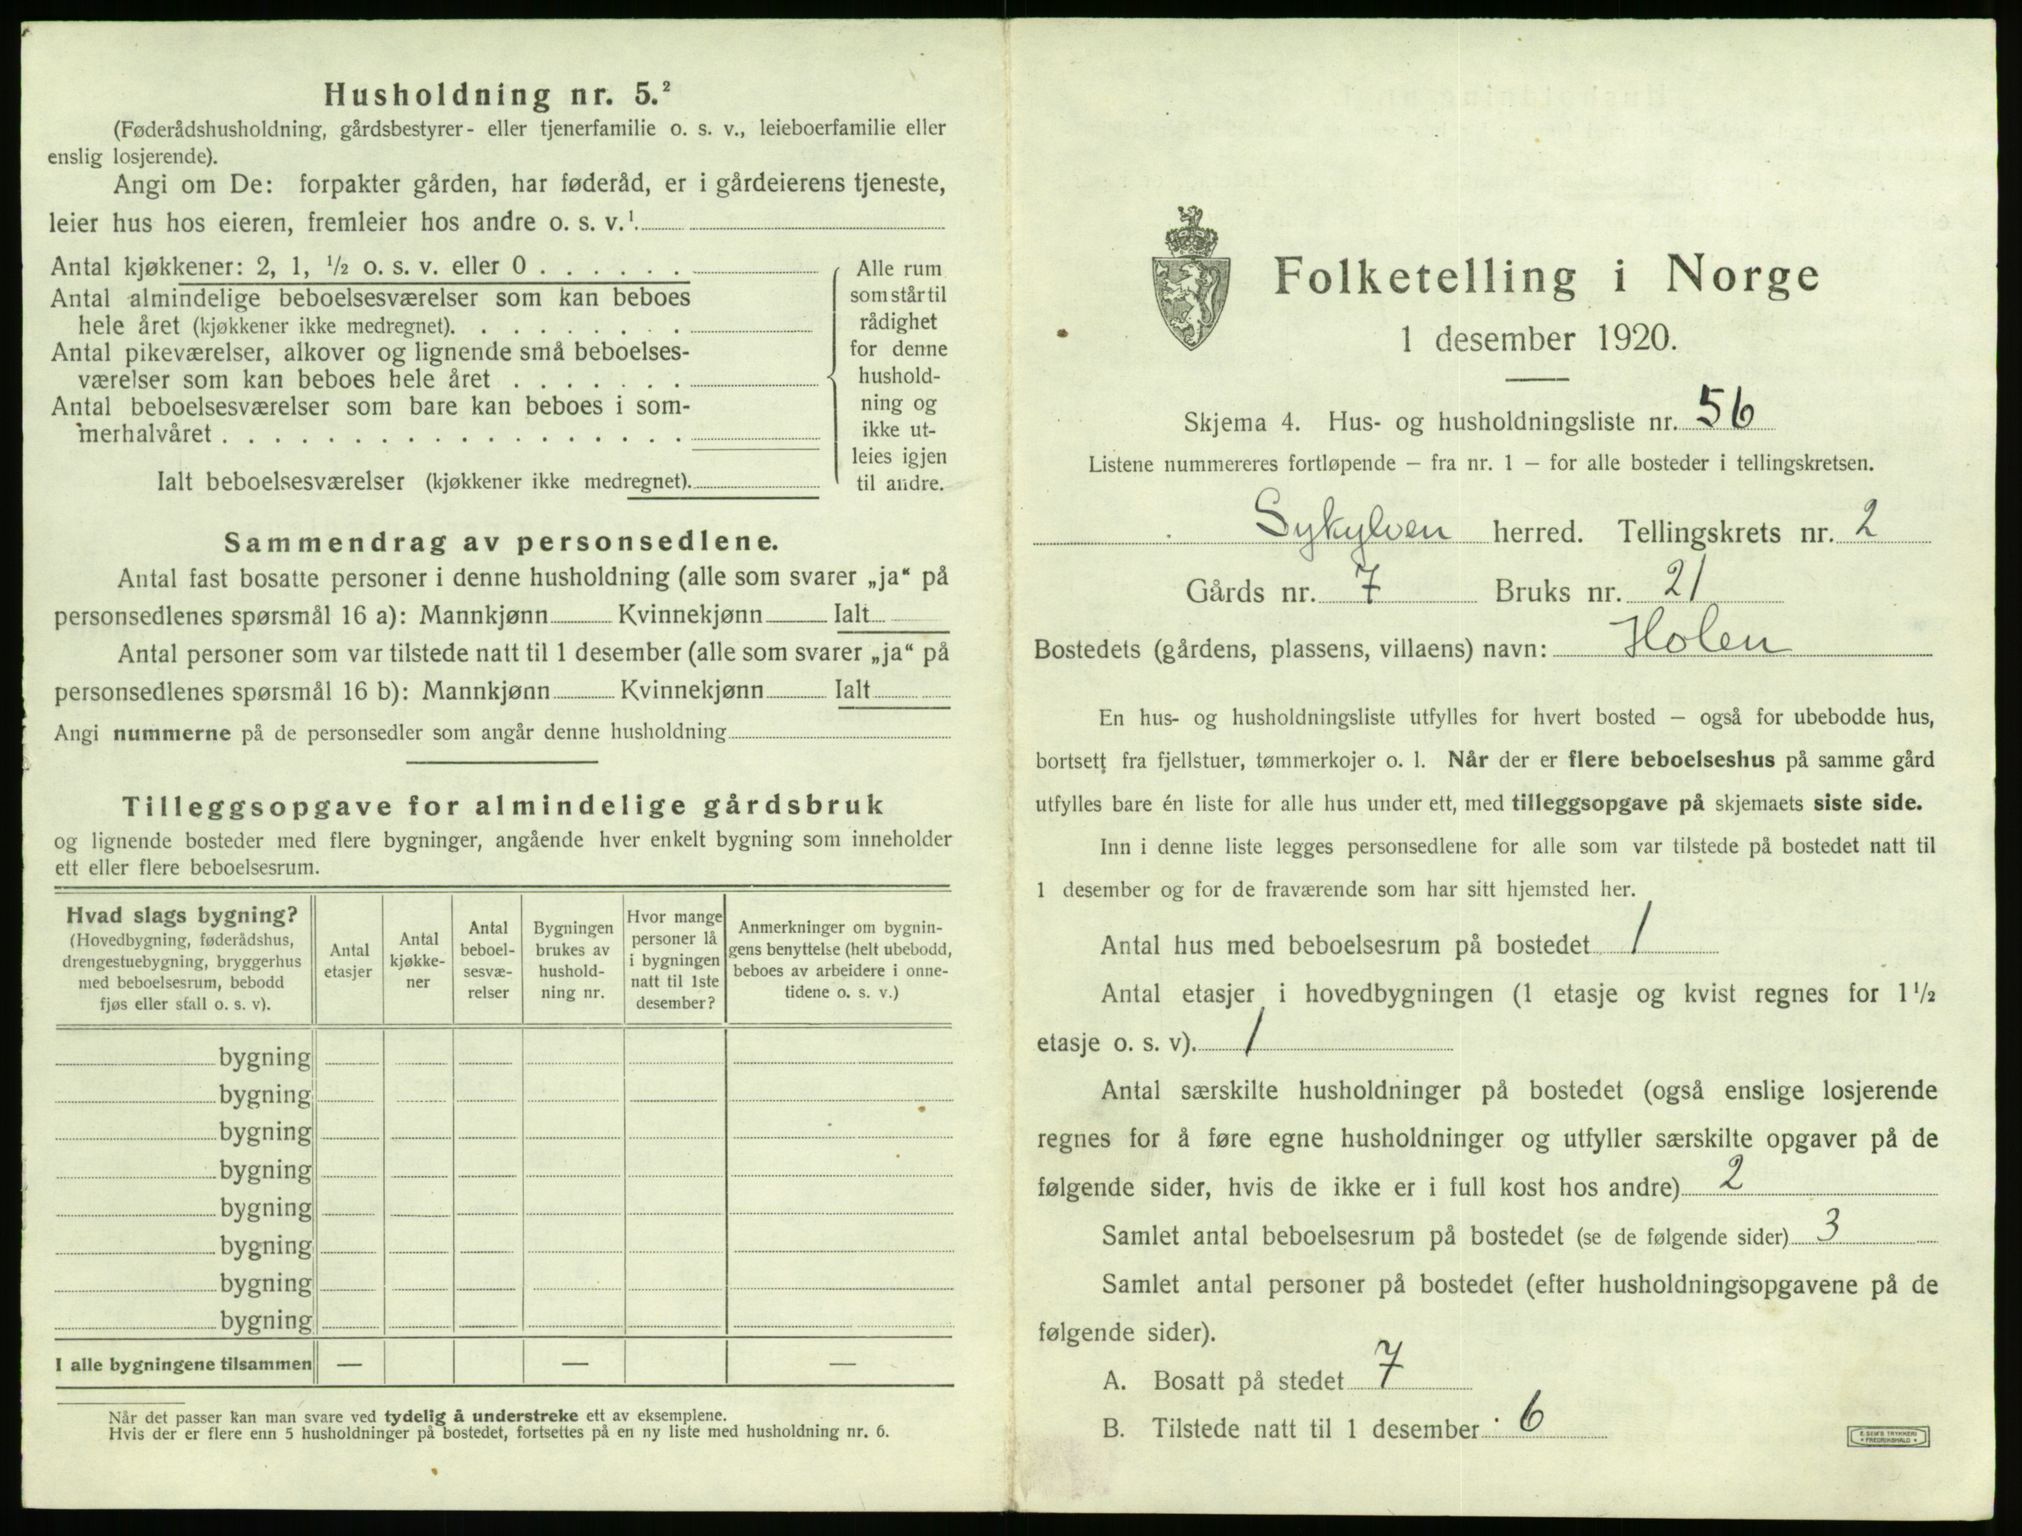 Husholdning nr. 5.²
(Føderådshusholdning, gårdsbestyrer- eller tjenerfamilie o. s. v., leieboerfamilie eller
enslig losjerende).
Angi om De: forpakter gården, har føderåd, er i gårdeierens tjeneste,
leier hus hos eieren, fremleier hos andre o. s. v.¹
Antal kjøkkener: 2, 1, ½ o. s. v. eller 0 . . . . . .
Antal almindelige beboelsesværelser som kan beboes
hele året (kjøkkener ikke medregnet). . . . . . . . .
Antal pikeværelser, alkover og lignende små beboelses-
værelser som kan beboes hele året . . . . . . .
Antal beboelsesværelser som bare kan beboes i som-
merhalvåret . . . . . . . . . . . . . . . . . .
Ialt beboelsesværelser (kjøkkener ikke medregnet).
Alle rum
som står til
rådighet
for denne
hushold-
ning og
ikke ut-
leies igjen
til andre.
Sammendrag av personsedlene.
Antal fast bosatte personer i denne husholdning (alle som svarer „ja“ på
personsedlenes spørsmål 16 a): Mannkjønn Kvinnekjønn Ialt
Antal personer som var tilstede natt til 1 desember (alle som svarer „ja“ på
personsedlenes spørsmål 16 b): Mannkjønn Kvinnekjønn Ialt
Angi nummerne på de personsedler som angår denne husholdning
Tilleggsopgave for almindelige gårdsbruk
og lignende bosteder med flere bygninger, angående hver enkelt bygning som inneholder
ett eller flere beboelsesrum.
Hvad slags bygning?
(Hovedbygning, føderådshus,
drengestuebygning, bryggerhus
med beboelsesrum, bebodd
fjøs eller stall o. s. v).
Antal
etasjer
Antal
kjøkke-
ner
Antal
beboel-
sesvæ-
relser
Bygningen
brukes av
hushold-
ning nr.
Hvor mange
personer lå
i bygningen
natt til 1ste
desember?
Anmerkninger om bygnin-
gens benyttelse (helt ubebodd,
beboes av arbeidere i onne-
tidene o. s. v.)
bygning
bygning
bygning
bygning
bygning
bygning
bygning
bygning
I alle bygningene tilsammen — — —
Når det passer kan man svare ved tydelig å understreke ett av eksemplene.
Hvis der er flere enn 5 husholdninger på bostedet, fortsettes på en ny liste med husholdning nr. 6.
Folketelling i Norge
1 desember 1920.
Skjema 4. Hus- og husholdningsliste nr. 56
Listene nummereres fortløpende – fra nr. 1 – for alle bosteder i tellingskretsen.
Sykylven herred. Tellingskrets nr. 2
Gårds nr. 7 Bruks nr. 21
Bostedets (gårdens, plassens, villaens) navn: Holen
En hus- og husholdningsliste utfylles for hvert bosted – også for ubebodde hus,
bortsett fra fjellstuer, tømmerkojer o. l. Når der er flere beboelseshus på samme gård
utfylles bare én liste for alle hus under ett, med tilleggsopgave på skjemaets siste side.
Inn i denne liste legges personsedlene for alle som var tilstede på bostedet natt til
1 desember og for de fraværende som har sitt hjemsted her.
Antal hus med beboelsesrum på bostedet 1
Antal etasjer i hovedbygningen (1 etasje og kvist regnes for 1½
etasje o. s. v). 1
Antal særskilte husholdninger på bostedet (også enslige losjerende
regnes for å føre egne husholdninger og utfyller særskilte opgaver på de
følgende sider, hvis de ikke er i full kost hos andre) 2
Samlet antal beboelsesrum på bostedet (se de følgende sider) 3
Samlet antal personer på bostedet (efter husholdningsopgavene på de
følgende sider).
A. Bosatt på stedet 7
B. Tilstede natt til 1 desember 6
E. SEM'S TRYKKERI
• FREDRIKSHALD •